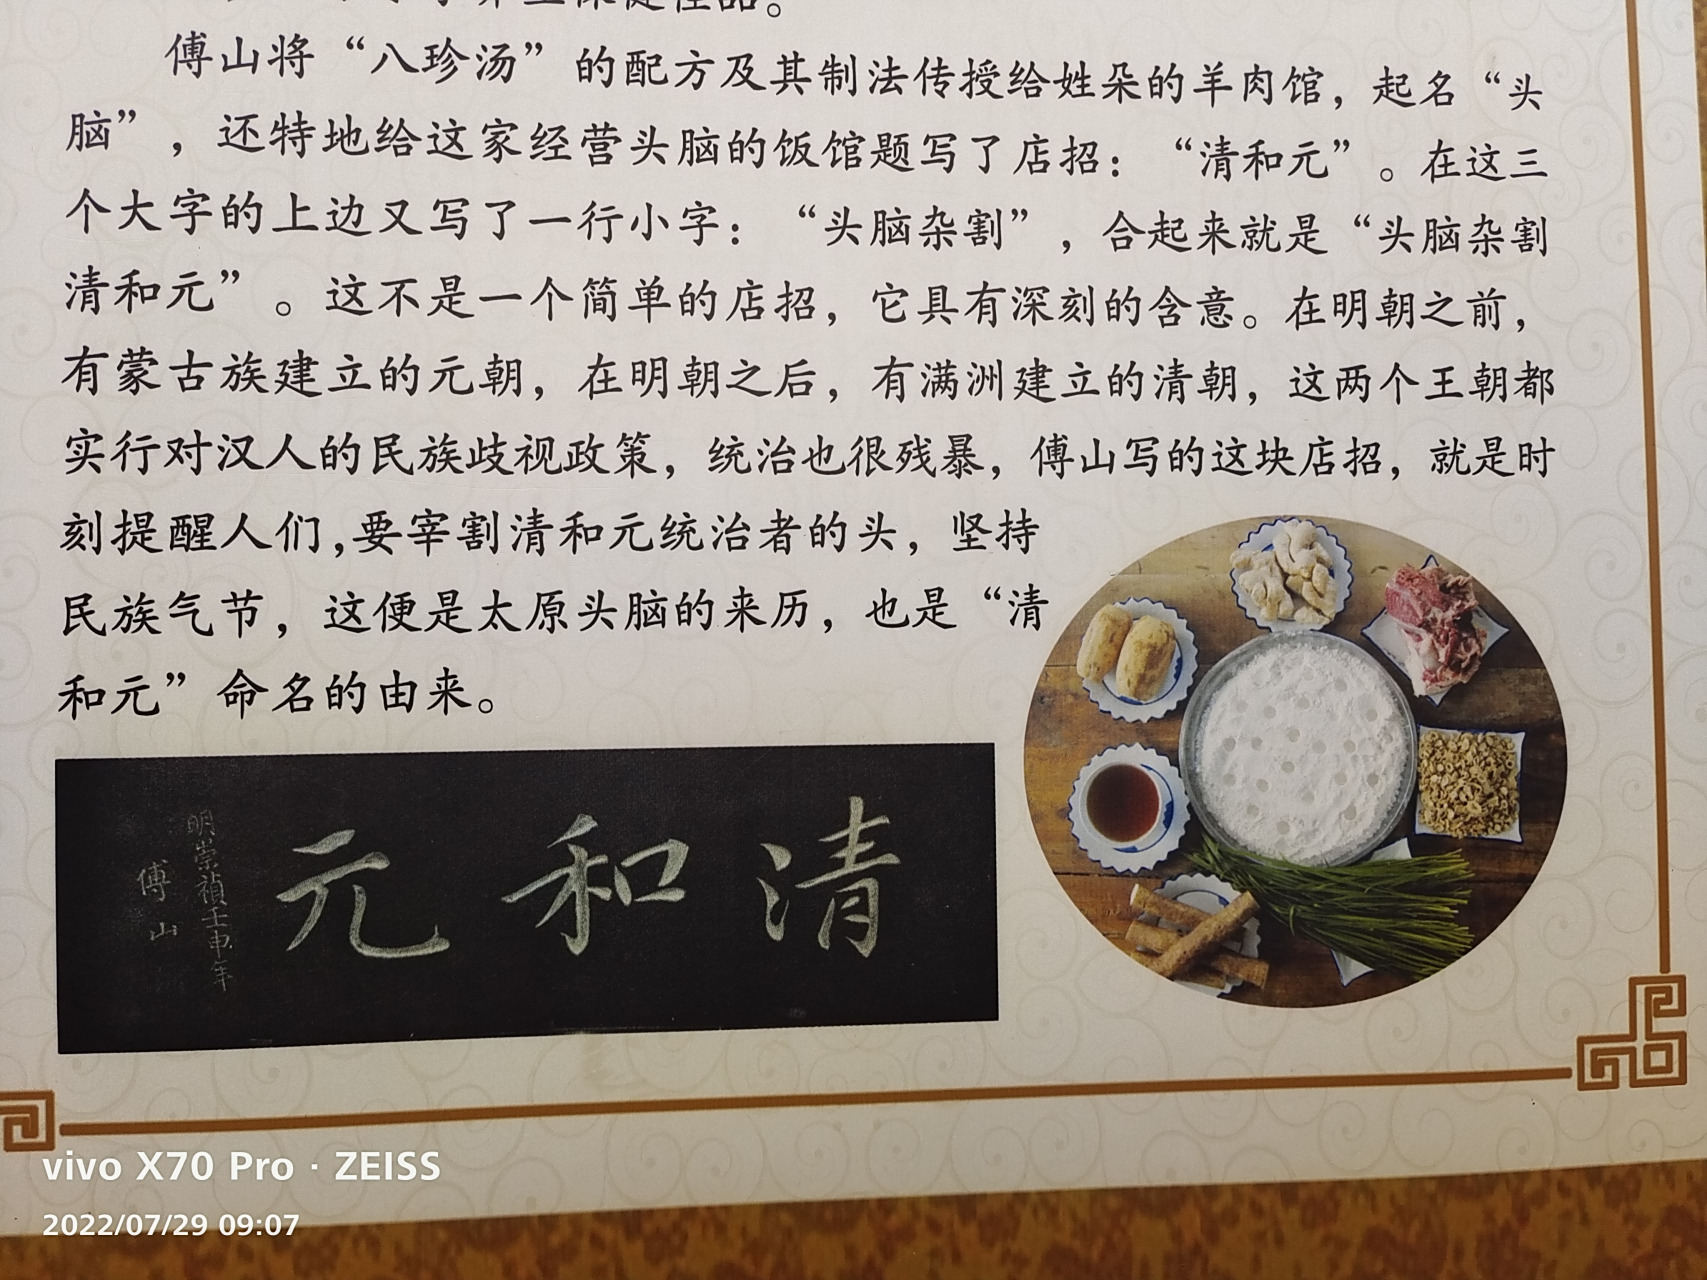 保健佳品。
傅山将“八珍汤”的配方及其制法传授给姓朵的羊肉馆，起名“头
脑”，还特地给这家经营头脑的饭馆题写了店招：“清和元”。在这三
个大字的上边又写了一行小字：“头脑杂割”，合起来就是“头脑杂割
清和元”。这不是一个简单的店招，它具有深刻的含意。在明朝之前，
有蒙古族建立的元朝，在明朝之后，有满洲建立的清朝，这两个王朝都
实行对汉人的民族歧视政策，统治也很残暴，傅山写的这块店招，就是时
刻提醒人们,要宰割清和元统治者的头，坚持
民族气节，这便是太原头脑的来历，也是“清
和元”命名的由来。
清和元
明崇禎壬申年
傅山
vivo X70 Pro · ZEISS
2022/07/29 09:07